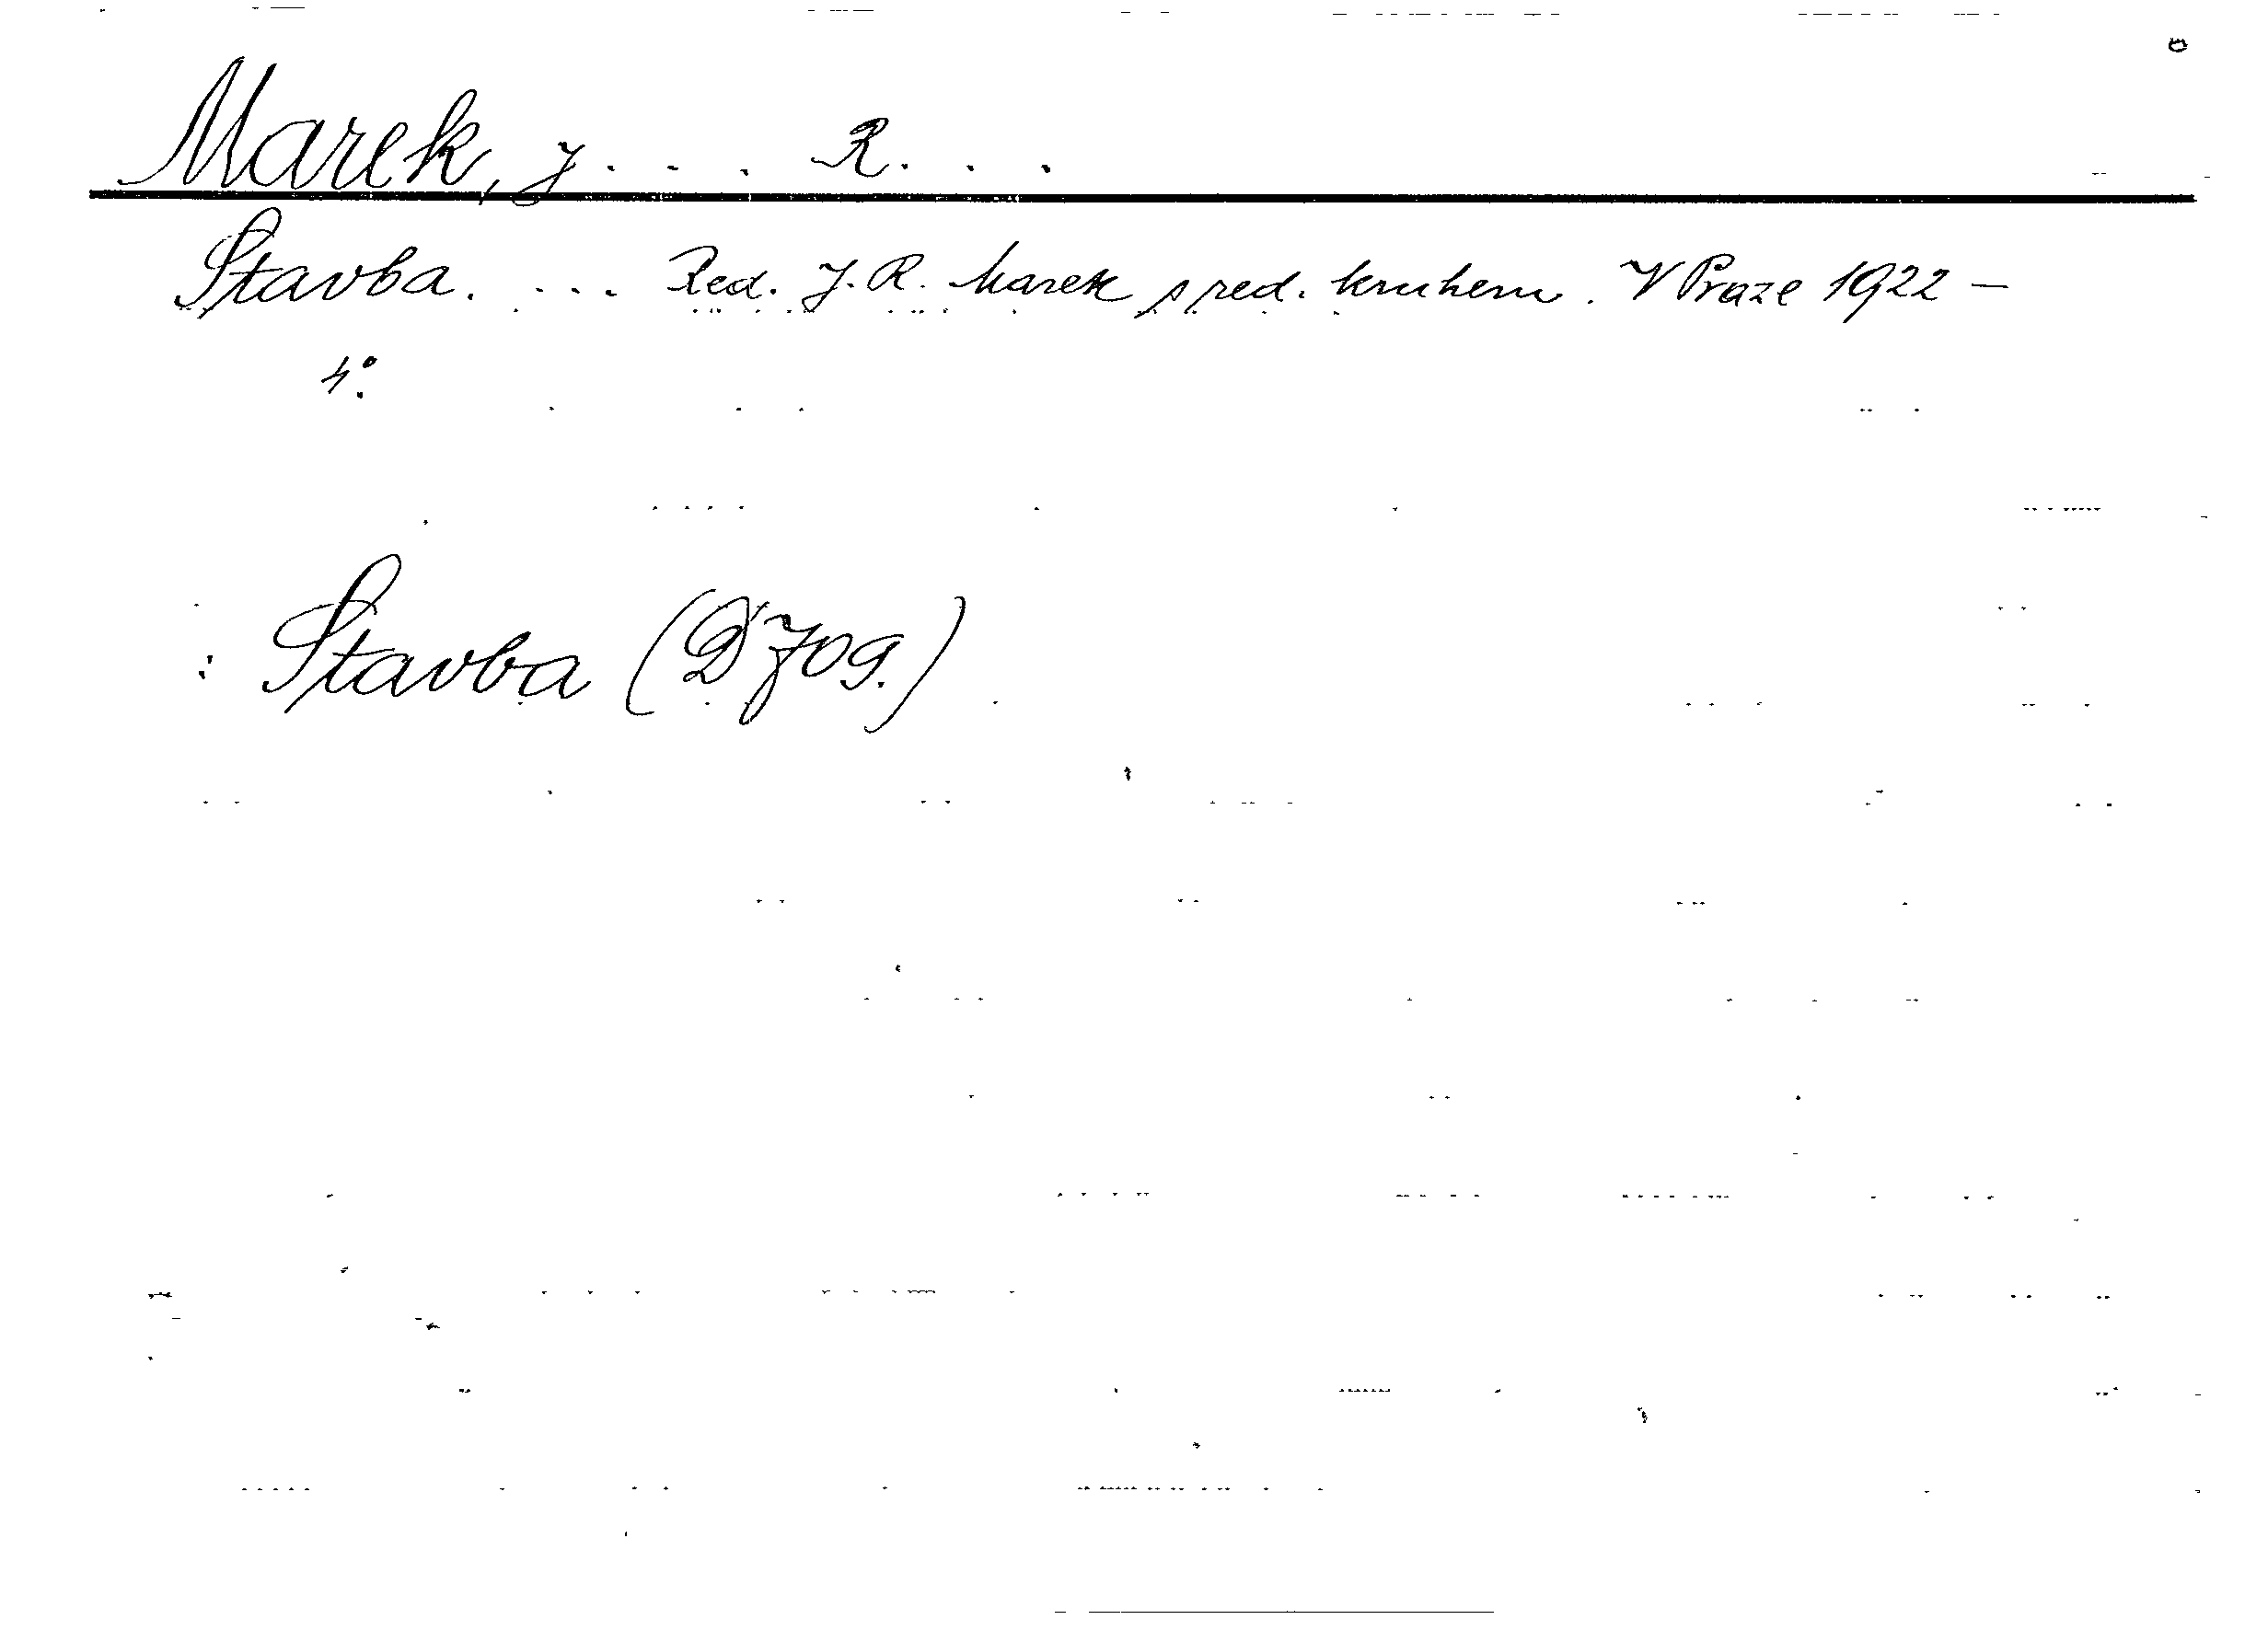 Marek, J... R...
Stavba. ... Red. J. R. Marek s red. kruhem. V Praze 1922 –
4°.
: Stavba (D 709.)